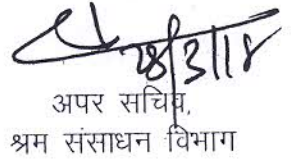 28/3/18
अपर सचिव,
श्रम संसाधन विभाग